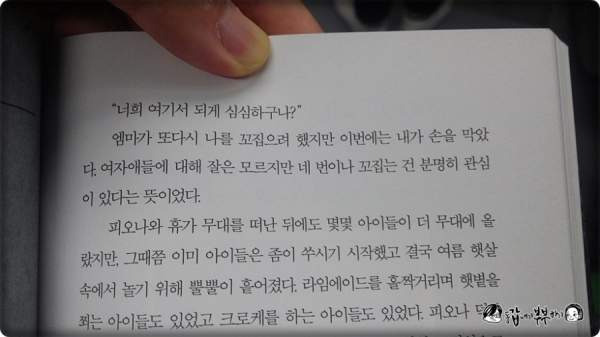 “너희 여기서 되게 심심하구나?”
엠마가 또다시 나를 꼬집으려 했지만 이번에는 내가 손을 막았
다. 여자애들에 대해 잘은 모르지만 네 번이나 꼬집는 건 분명히 관심
이 있다는 뜻이었다.
피오나와 휴가 무대를 떠난 뒤에도 몇몇 아이들이 더 무대에 올
랐지만, 그때쯤 이미 아이들은 좀이 쑤시기 시작했고 결국 여름 햇살
속에서 놀기 위해 뿔뿔이 흩어졌다. 라임에이드를 홀짝거리며 햇볕을
쬐는 아이들도 있었고 크로케를 하는 아이들도 있었다. 피오나